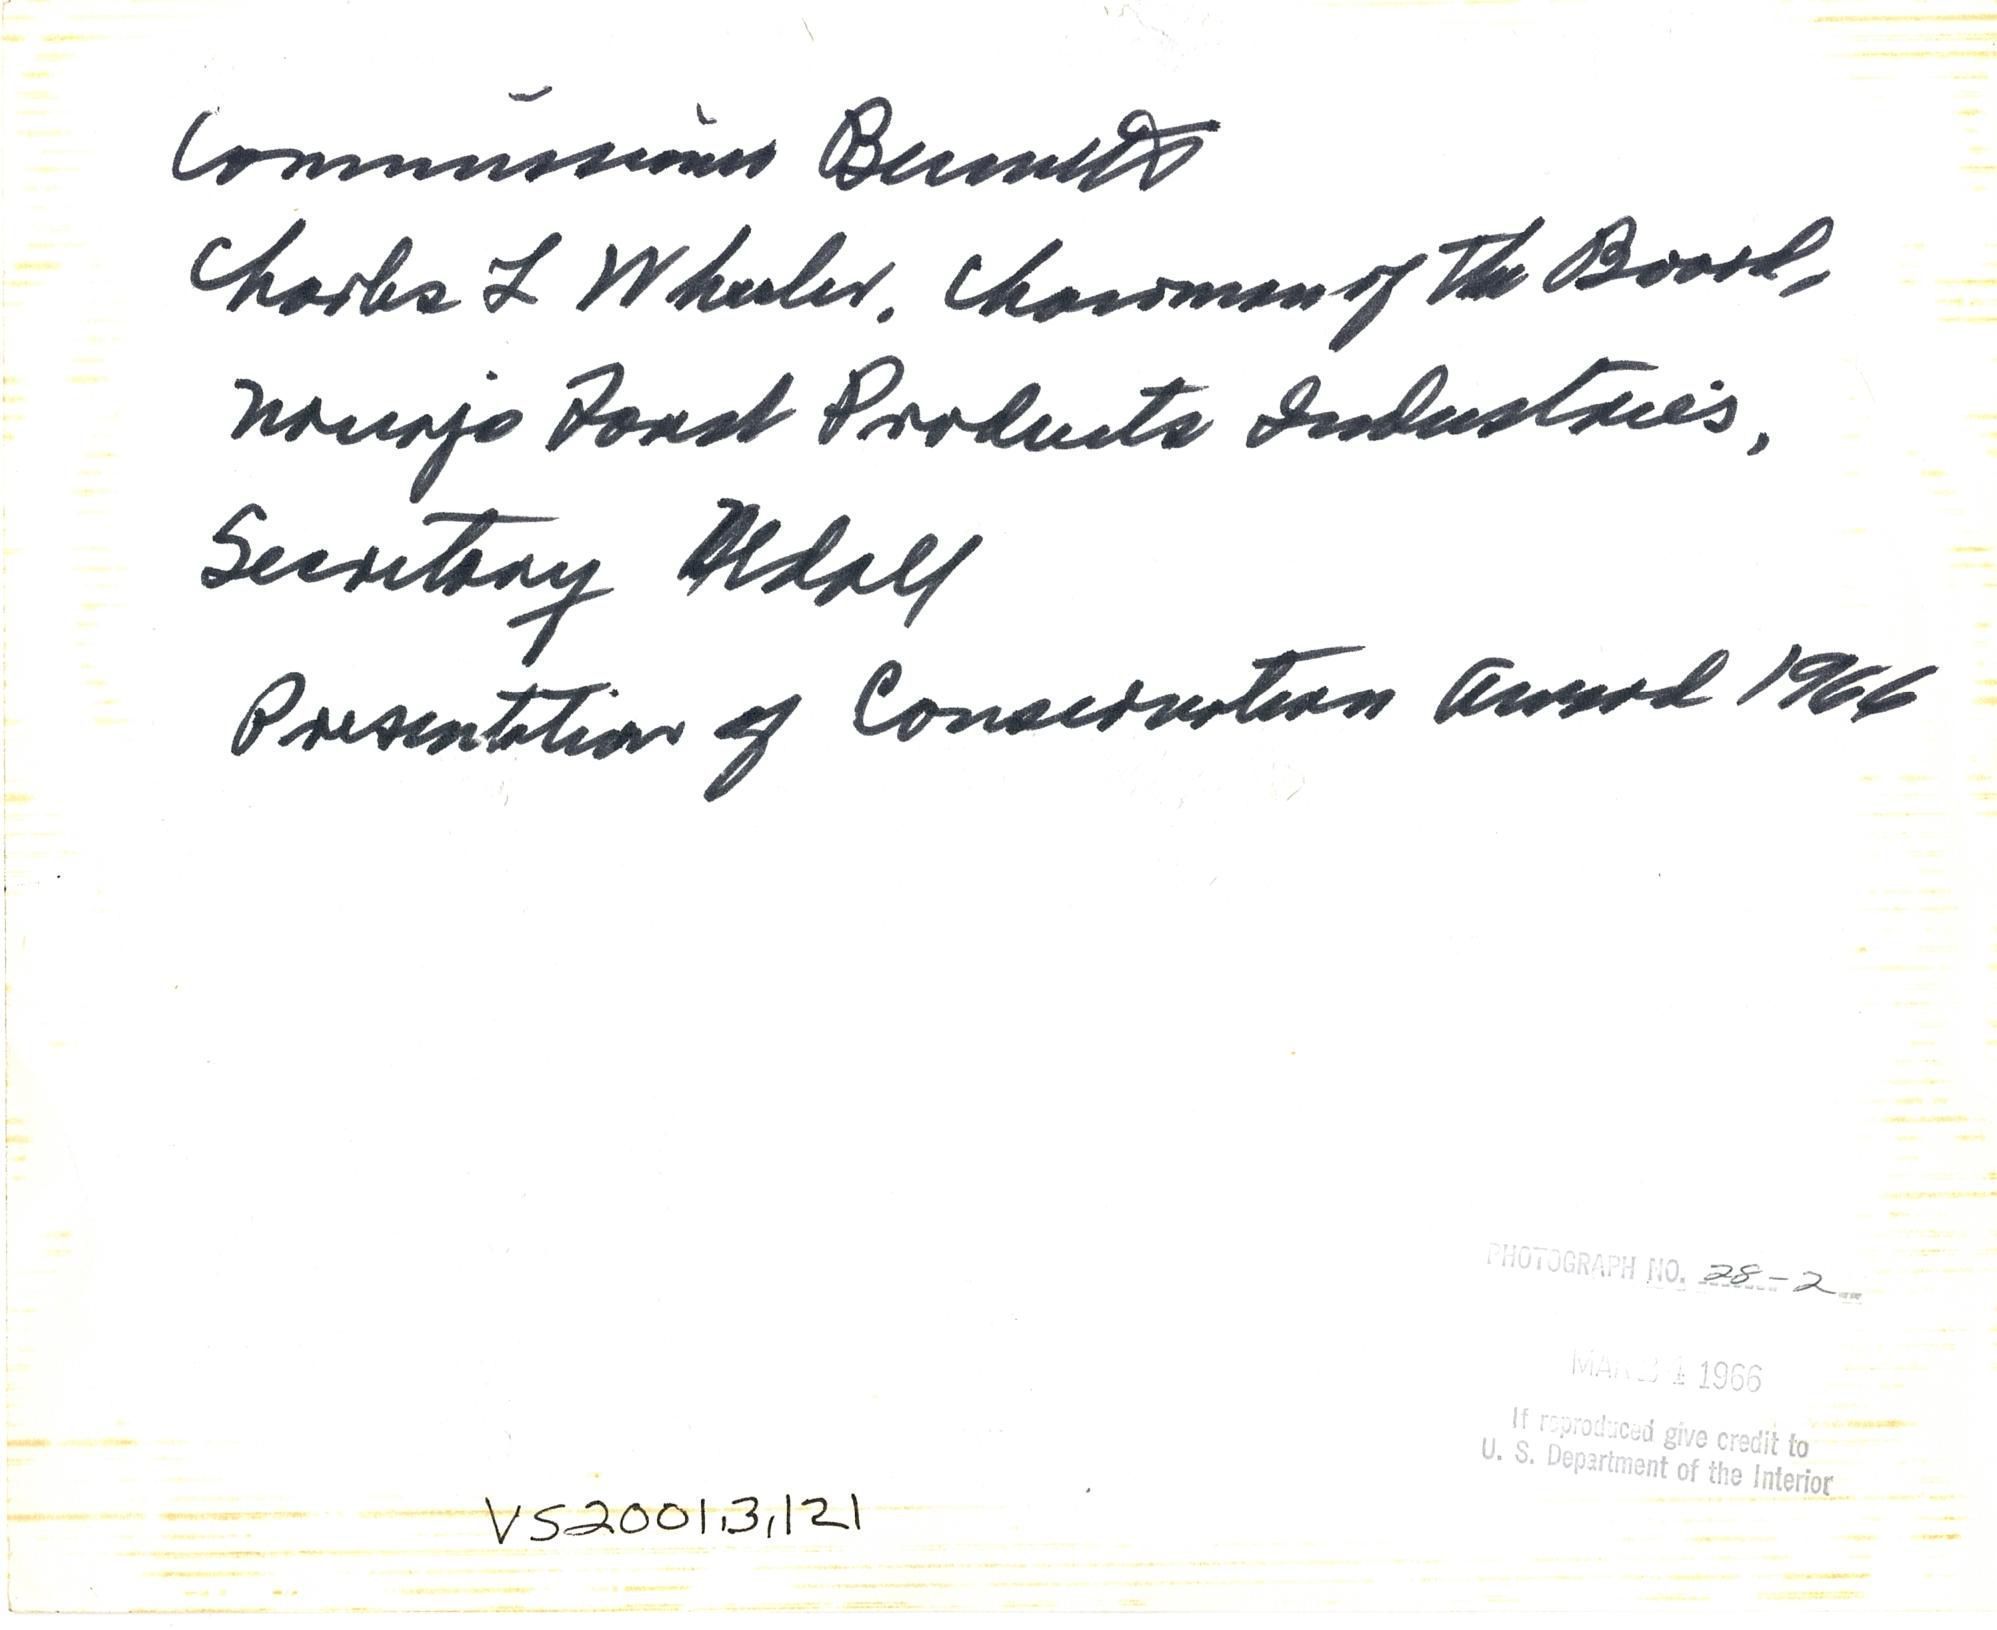 Commissioner Bennett
Charles L Wheeler, Chairman of the Board,
Navajo Forest Products Industries,
Secretary Udall
Presentation of Conservation Award 1966
PHOTOGRAPH NO. 28-2
1966
If reproduced give credit to
U. S. Department of the Interior
VS2001,3,121